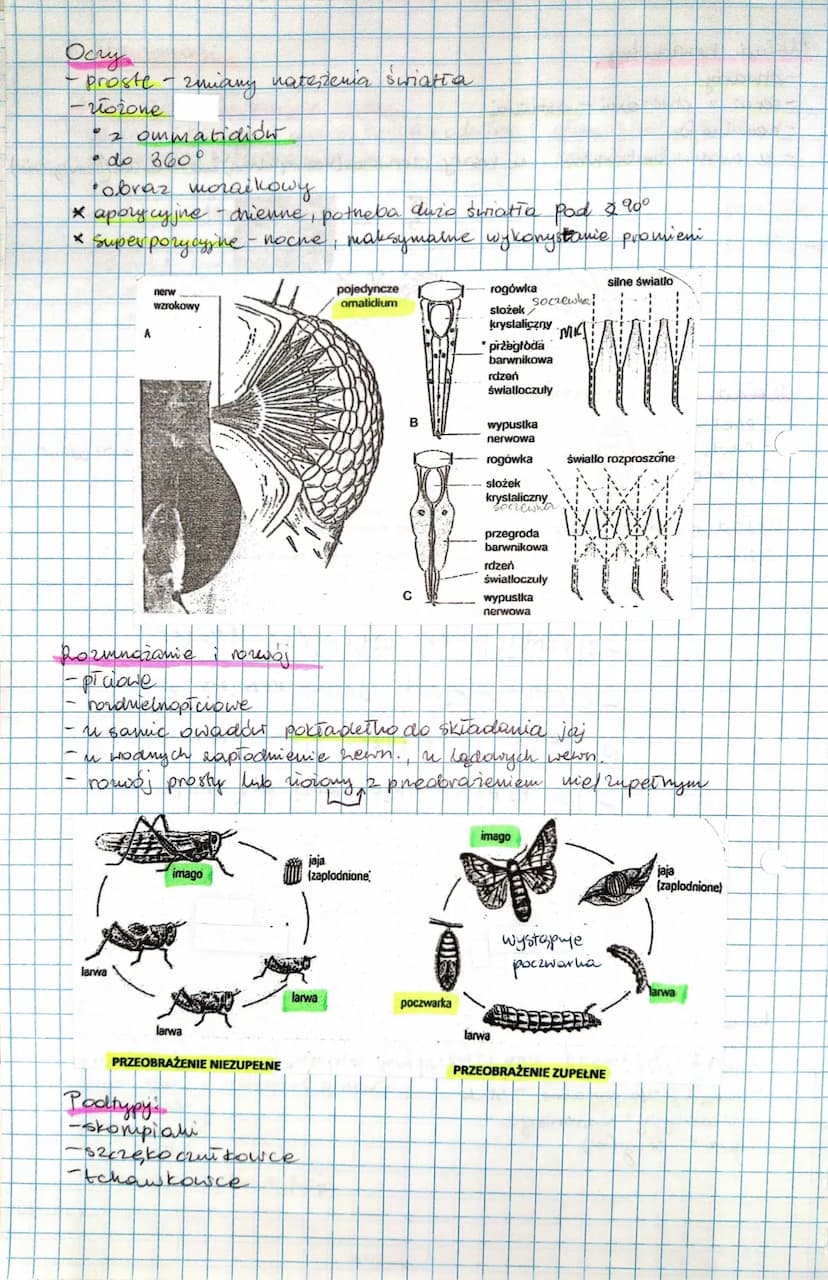 Oczy
- proste - zmiany natężenia światła
- złożone
• z ommatidiów
• do 360°
• obraz mozaikowy
× apozycyjne - dzienne, potrzeba dużo światła pod ∢ 90°
× superpozycyjne - nocne, maksymalne wykorzystanie promieni
nerw
wzrokowy
A
pojedyncze
omatidium
rogówka
soczewka
stożek
krystaliczny
przegroda
barwnikowa
rdzeń
światłoczuły
B
wypustka
nerwowa
silne światło
MK
rogówka
stożek
krystaliczny
soczewka
przegroda
barwnikowa
rdzeń
światłoczuły
C
wypustka
nerwowa
światło rozproszone
Rozmnażanie i rozwój
- płciowe
- rozdzielnopłciowe
- u samic owadów pokładełko do składania jaj
- u wodnych zapłodnienie zewn., u lądowych wewn.
- rozwój prosty lub złożony z przeobrażeniem nie/zupełnym
imago
jaja
(zaplodnione)
larwa
larwa
larwa
PRZEOBRAŻENIE NIEZUPEŁNE
imago
jaja
(zaplodnione)
Występuje
poczwarka
larwa
larwa
poczwarka
PRZEOBRAŻENIE ZUPEŁNE
Podtypy:
- skorupiaki
- szczękoczułkowce
- tchawkowce